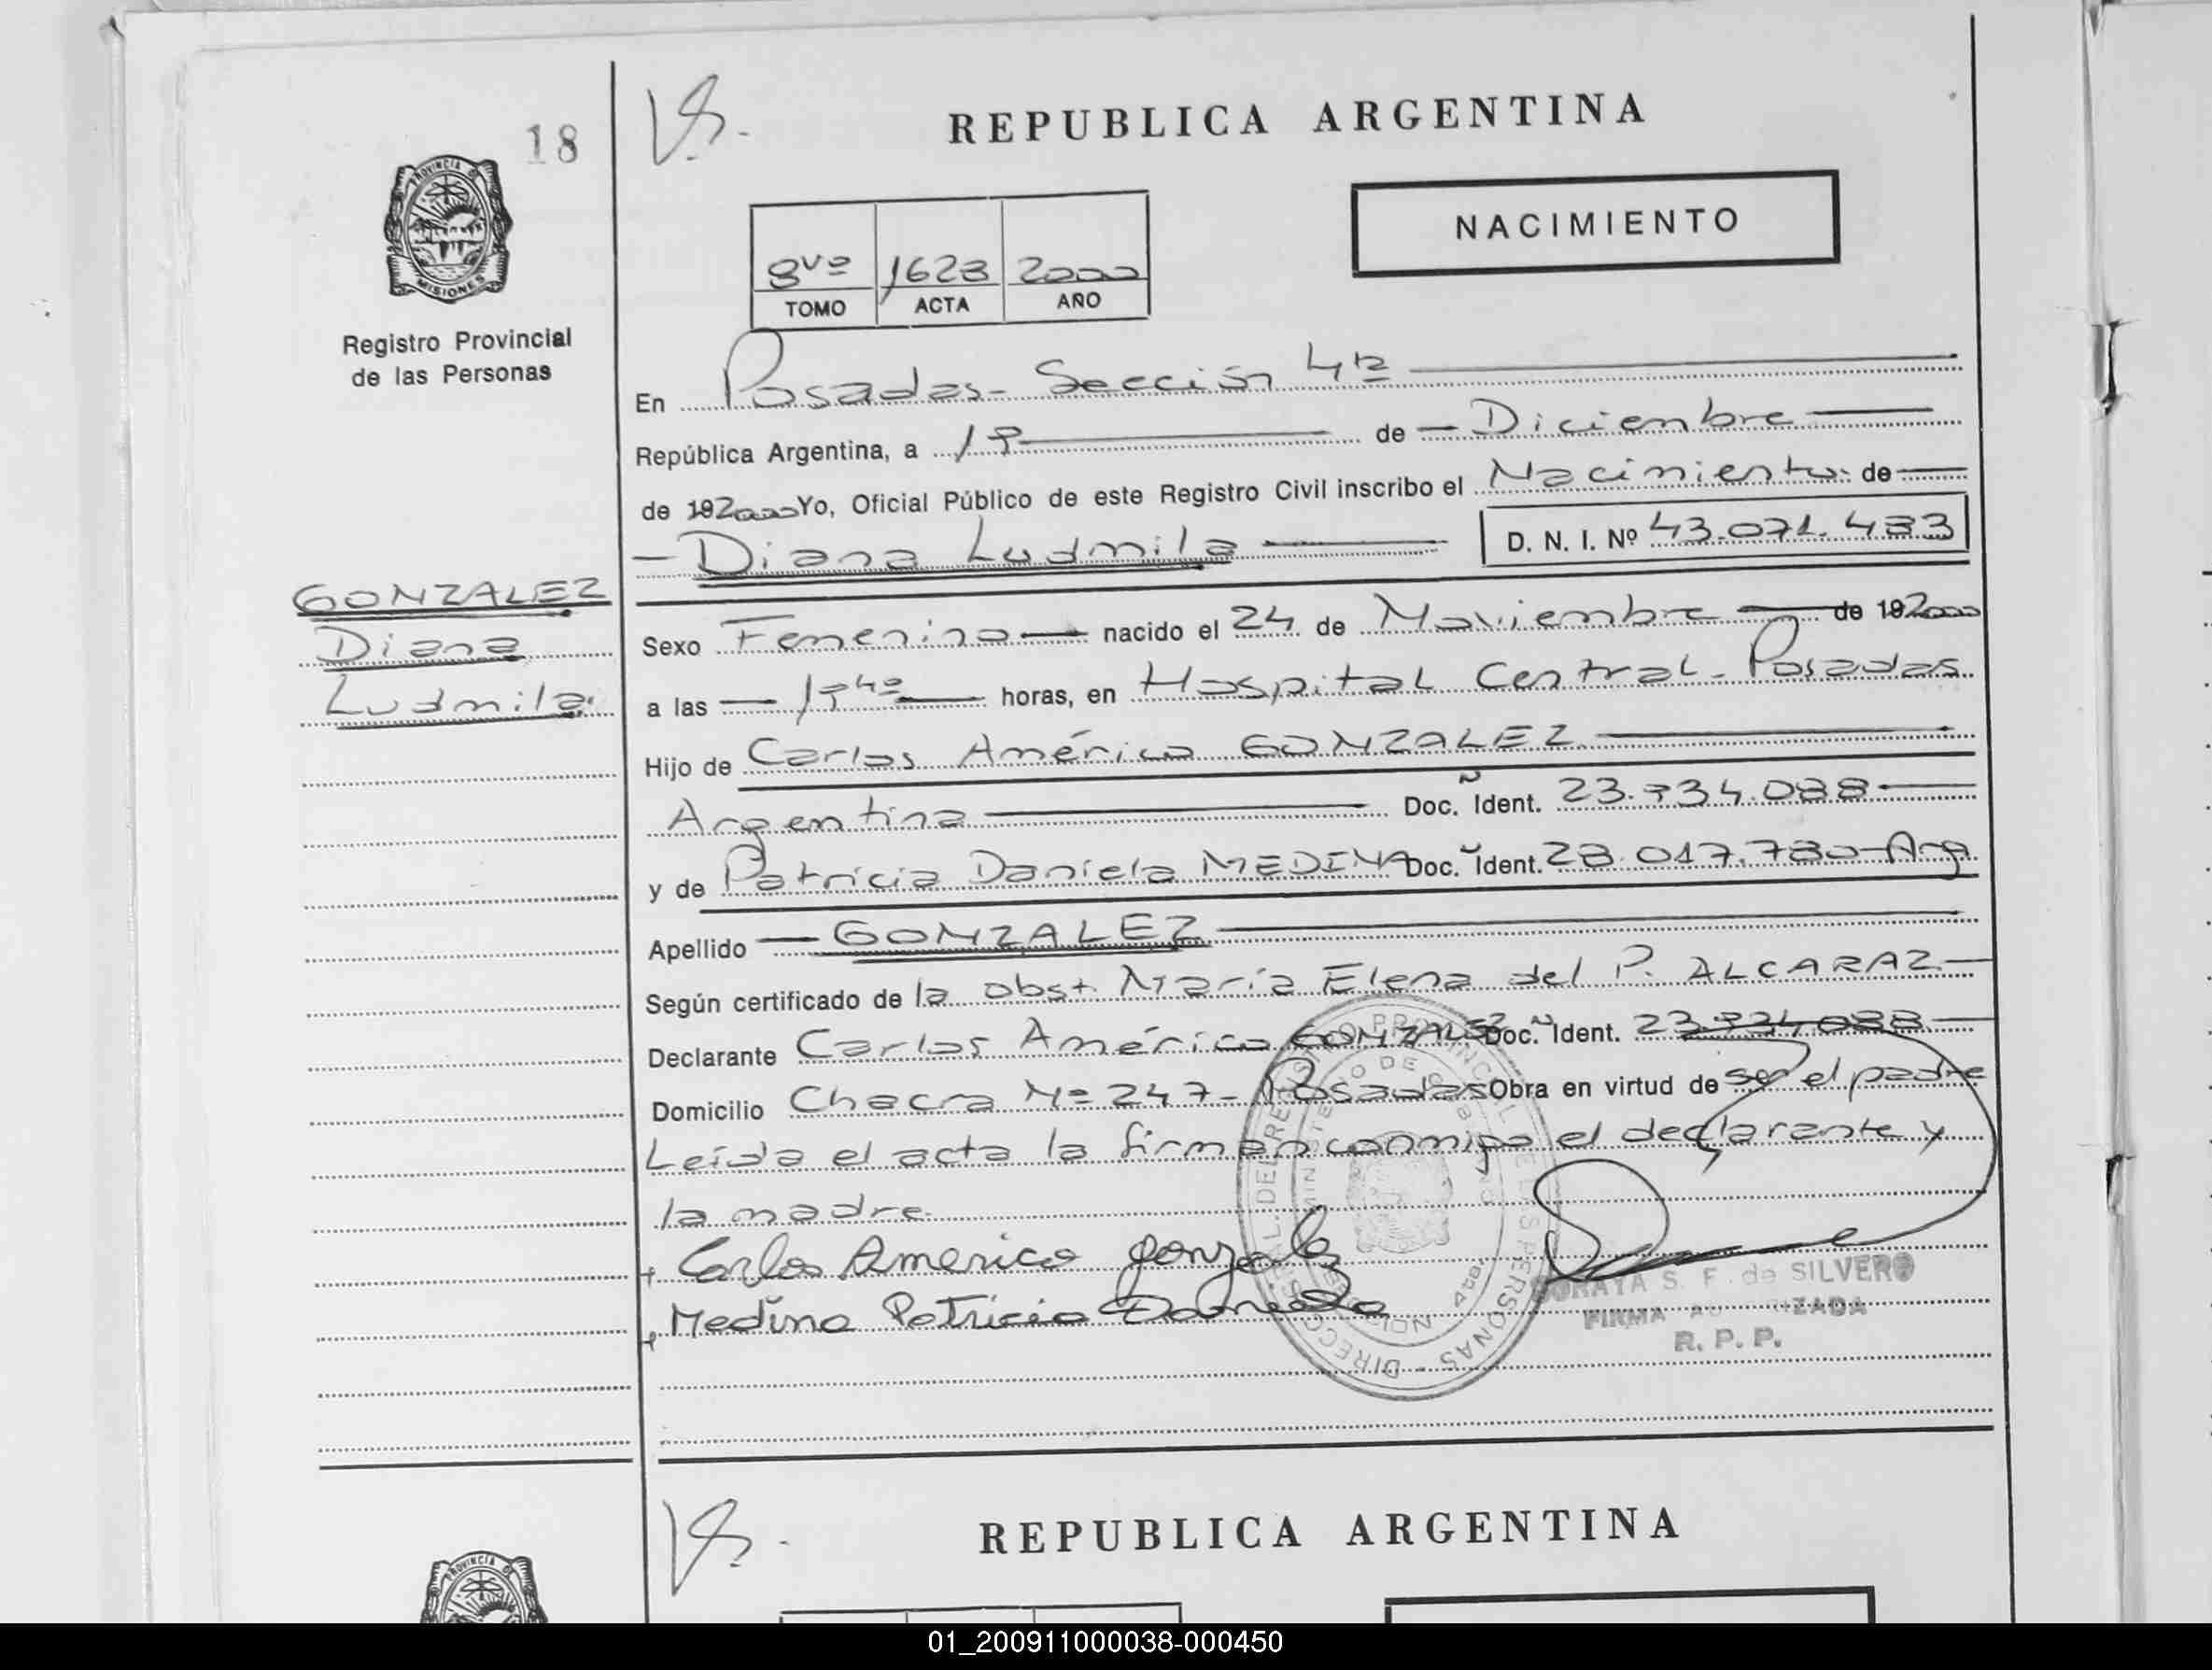 18
V.S.-
REPUBLICA ARGENTINA
PROVINCIA DE
MISIONES
Registro Provincial
de las Personas
NACIMIENTO
8vo 1623 2000
TOMO ACTA AÑO
En Posadas - Sección 4ta
República Argentina, a 19 de Diciembre
de 192000 Yo, Oficial Público de este Registro Civil inscribo el Nacimiento de
Diana Ludmila D. N. I. Nº 43.071.433
GONZALEZ
Diana
Ludmila
Sexo Femenino nacido el 24 de Noviembre de 192000
a las horas, en Hospital Central - Posadas.
Hijo de Carlos Américo GONZALEZ
Argentina Doc. Ident. 23.934.088
y de Patricia Daniela MEDINA Doc. Ident. 28.017.780 - Arg
Apellido GONZALEZ
Según certificado de la obst. María Elena del P. ALCARAZ
Declarante Carlos Américo GONZALEZ Doc. Ident. 23.934.088
Domicilio Chacra Nº 247 - Posadas Obra en virtud de ser el padre
Leída el acta la firman conmigo el declarante y
la madre.
Carlos Americo gonzalez
Medina Patricia Daniela
SORAYA S. F. de SILVERO
FIRMA AUTORIZADA
R. P. P.
REPUBLICA ARGENTINA
PROVINCIA DE
01_200911000038-000450